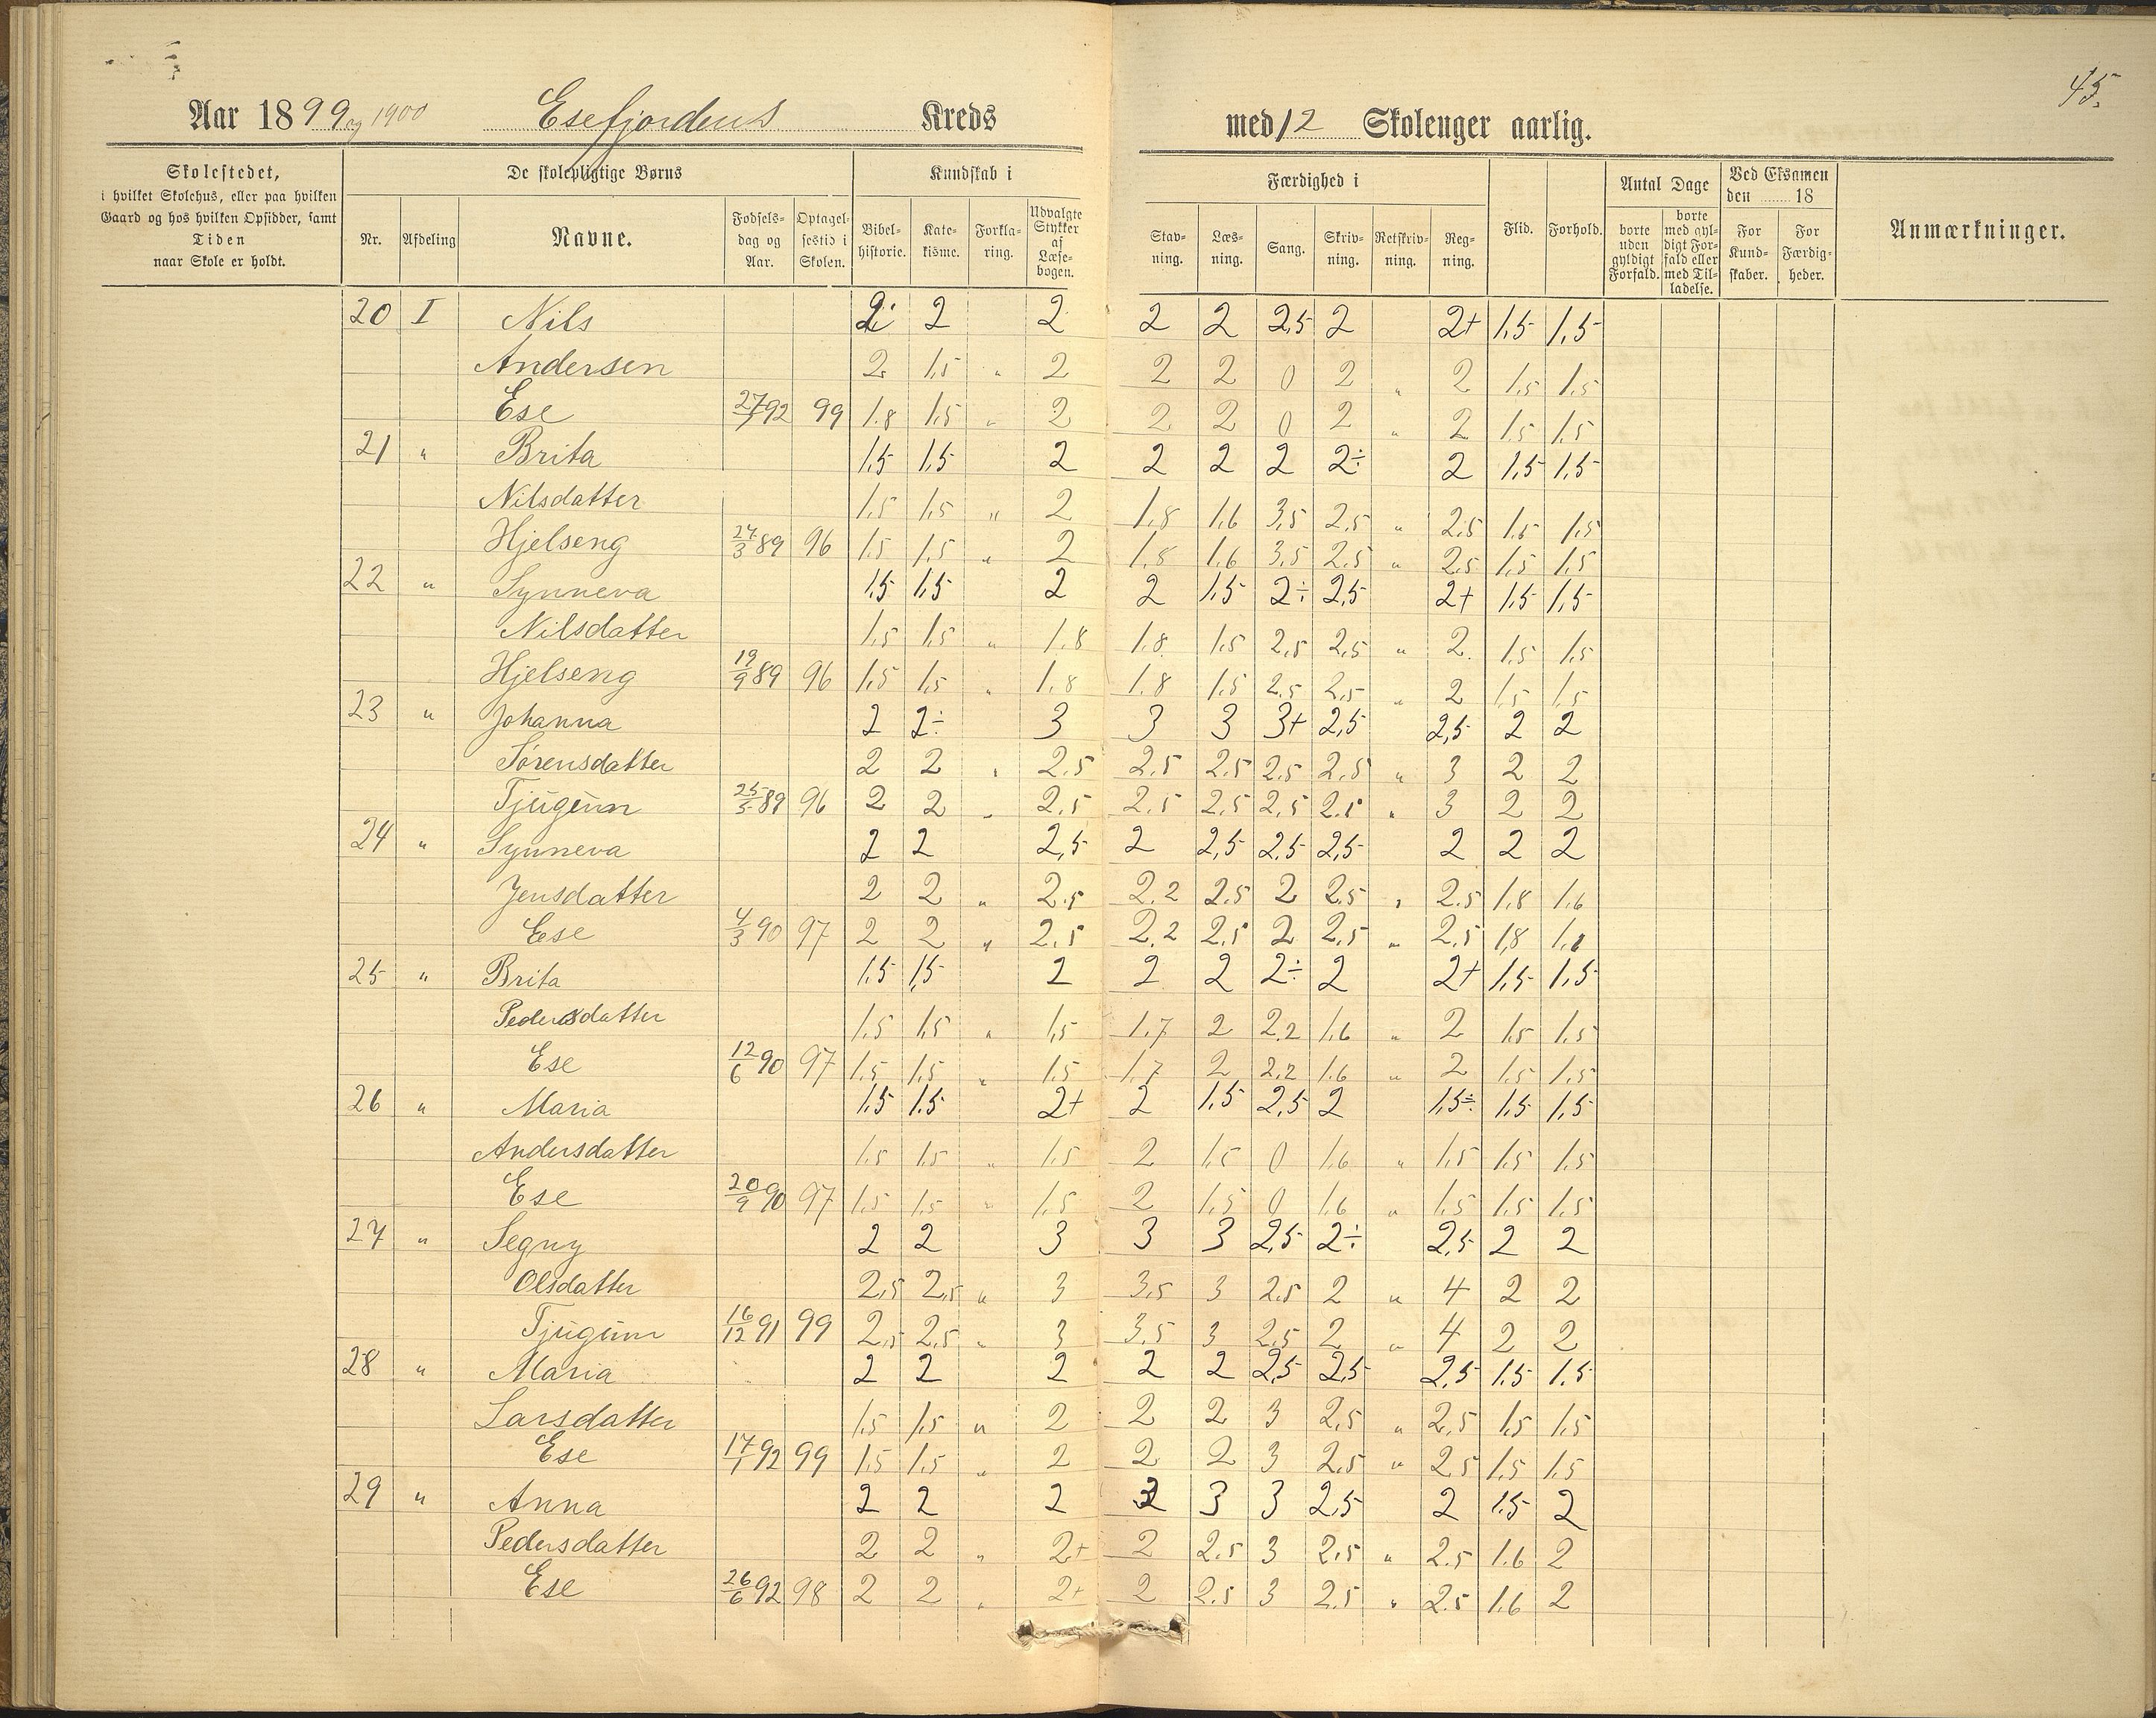 45.
Aar 1899 og 1900 Esefjordens Kreds med 12 Skoleuger aarlig.
Skolestedet, i hvilket Skolehus, eller paa hvilken Gaard og hos hvilken Opsidder, samt Tiden naar Skole er holdt.
De skolepligtige Børns
Nr. Afdeling Navne. Fødselsdag og Aar. Optagelsestid i Skolen.
Kundskab i
Bibelhistorie. Katekisme. Forklaring. Udvalgte Stykker af Læsebogen.
Færdighed i
Stavning. Læsning. Sang. Skrivning. Retskrivning. Regning.
Flid. Forhold.
Antal Dage
borte uden gyldigt Forfald. borte med gyldigt Forfald eller med Tilladelse.
Ved Eksamen den 18
For Kundskaber. For Færdigheder.
Anmærkninger.
20 I Nils 2 2 2 2 2 2,5 2 2+ 1,5 1,5
Andersen 2 1.5 " 2 2 2 0 2 " 2 1.5 1.5
Ese 27/7 92 99 1.8 1.5 " 2 2 2 0 2 " 2 1.5 1.5
21 " Brita 1,5 1,5 2 2 2 2 2÷ 2 1,5 1,5
Nilsdatter 1.5 1.5 " 2 1.8 1.6 3.5 2.5 " 2.5 1.5 1.5
Hjelseng 24/3 89 96 1.5 1.5 " 2 1.8 1.6 3.5 2.5 " 2.5 1.5 1.5
22 " Synneva 1,5 1,5 2 2 1,5 2÷ 2,5 2+ 1,5 1,5
Nilsdatter 1.5 1.5 " 1.8 1.8 1.5 2.5 2.5 " 2 1.5 1.5
Hjelseng 19/9 89 96 1.5 1.5 " 1.8 1.8 1.5 2.5 2.5 " 2 1.5 1.5
23 " Johanna 2 2÷ 3 3 3 3+ 2,5 2,5 2 2
Sørensdatter 2 2 " 2.5 2.5 2.5 2.5 2.5 " 3 2 2
Tjugum 25/5 89 96 2 2 " 2.5 2.5 2.5 2.5 2.5 " 3 2 2
24 " Synneva 2 2 2,5 2 2,5 2,5 2,5 2 2 2
Jensdatter 2 2 " 2.5 2.2 2.5 2 2.5 " 2.5 1.8 1.6
Ese 4/3 90 97 2 2 " 2.5 2.2 2.5 2 2.5 " 2.5 1.8
25 " Brita 1,5 1,5 2 2 2 2÷ 2 2+ 1,5 1,5
Pedersdatter 1.5 1.5 " 1.5 1.7 2 2.2 1.6 " 2 1.5 1.5
Ese 12/6 90 97 1.5 1.5 " 1.5 1.7 2 2.2 1.6 " 2 1.5 1.5
26 " Maria 1,5 1,5 2+ 2 1,5 2,5 2 1,5÷ 1,5 1,5
Andersdatter 1.5 1.5 " 1.5 2 1.5 0 1.6 " 1.5 1.5 1.5
Ese 20/9 90 97 1.5 1.5 " 1.5 2 1.5 0 1.6 " 1.5 1.5 1.5
27 " Segny 2 2 3 3 3 2,5 2÷ 2,5 2 2
Olsdatter 2.5 2.5 " 3 3.5 3 2.5 2 " 4 2 2
Tjugum 16/12 91 99 2.5 2.5 " 3 3.5 3 2.5 2 " 4 2 2
28 " Maria 2 2 2 2 2 2,5 2,5 2,5 1,5 1,5
Larsdatter 1.5 1.5 " 2 2 2 3 2.5 " 2.5 1.5 1.5
Ese 17/1 92 99 1.5 1.5 " 2 2 2 3 2.5 " 2.5 1.5 1.5
29 " Anna 2 2 2 3 3 2,5 2 1,5 2
Pedersdatter 2 2 " 2+ 2 2.5 3 2.5 " 2.5 1.6 2
Ese 26/6 92 98 2 2 " 2+ 2 2.5 3 2.5 " 2.5 1.6 2